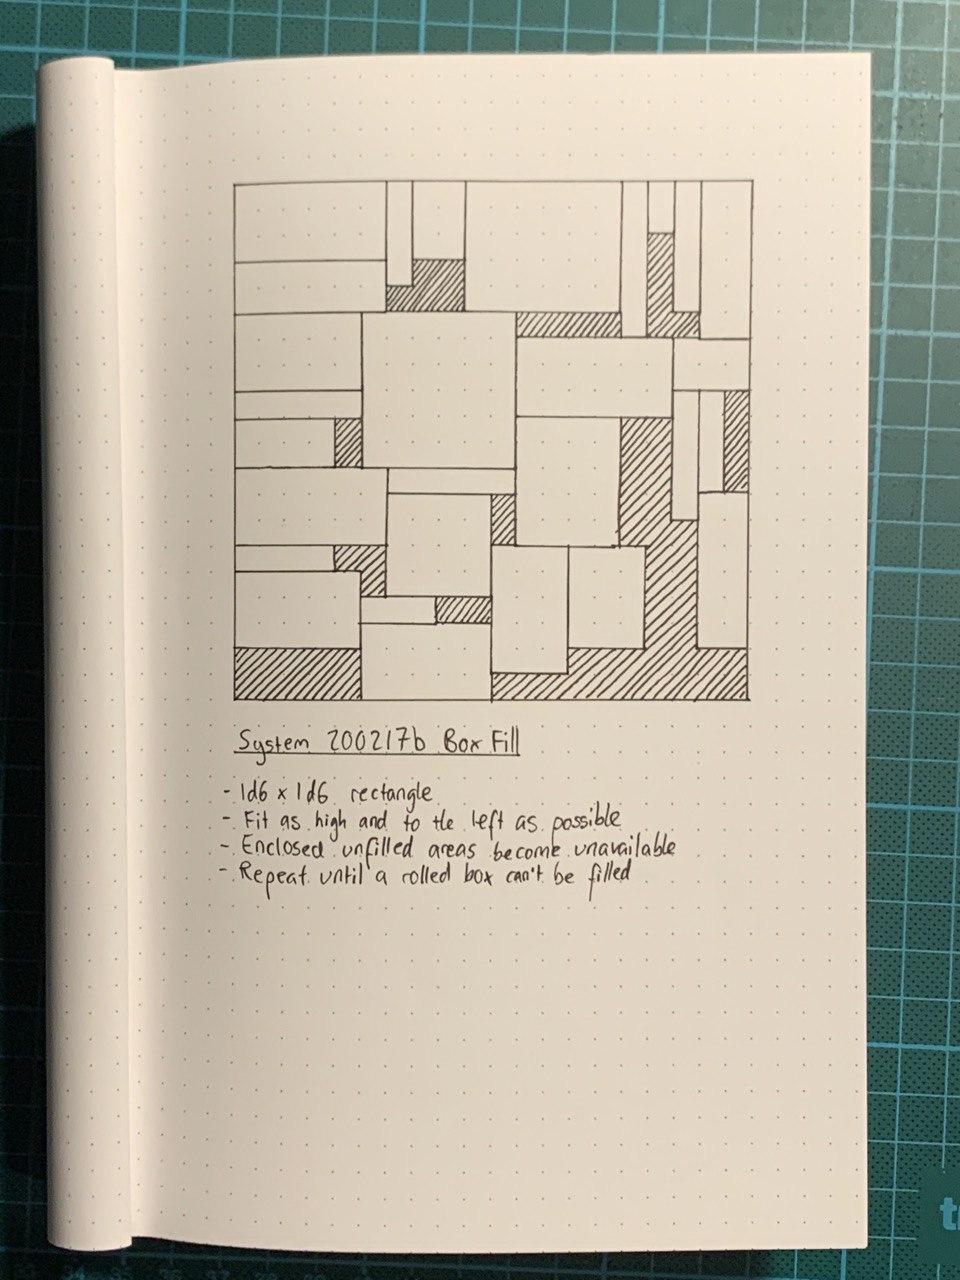 System 200217b Box Fill
- 1d6 x 1d6 rectangle
- Fit as high and to the left as possible
- Enclosed unfilled areas become unavailable
- Repeat until a rolled box can't be filled